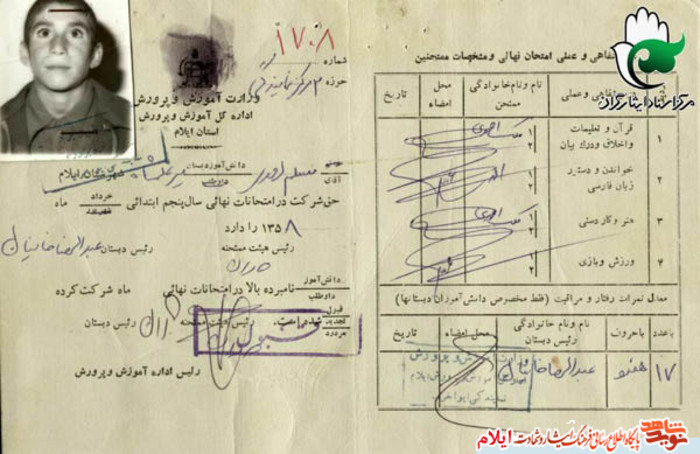 شماره ۱۷۰۸
حوزه ۳ مرکز نمایندگی
وزارت آموزش و پرورش
اداره کل آموزش و پرورش
استان ایلام
دانش‌آموز دبستان
داوطلب
حق شرکت در امتحانات نهائی سال پنجم ابتدائی خرداد ماه
۱۳۵۸ را دارد
رئیس هیئت ممتحنه رئیس دبستان عبدالرضا خانیان
دانش‌آموز
داوطلب
نامبرده بالا در امتحانات نهائی ماه شرکت کرده
قبول
تجدید
مردود
شده است. رئیس هیئت ممتحنه رئیس دبستان
قبول
رئیس اداره آموزش و پرورش
شفاهی و عملی امتحان نهائی و مشخصات ممتحنین
شفاهی و عملی
نام و نام خانوادگی ممتحن
محل امضاء
تاریخ
۱ قرآن و تعلیمات و اخلاق و درك بیان ۱ ۲
۲ خواندن و دستور زبان فارسی ۱ ۲
۳ هنر و کار دستی ۱ ۲
۴ ورزش و بازی ۱ ۲
معدل نمرات رفتار و مراقبت (فقط مخصوص دانش‌آموزان دبستانها)
باعدد
باحروف
نام و نام خانوادگی رئیس دبستان
محل امضاء
تاریخ
۱۷ هفده عبدالرضا خانیان
وزارت آموزش و پرورش
مرکز اسناد ایثارگران
نوید شاهد
پایگاه اطلاع رسانی فرهنگ ایثار و شهادت ایلام